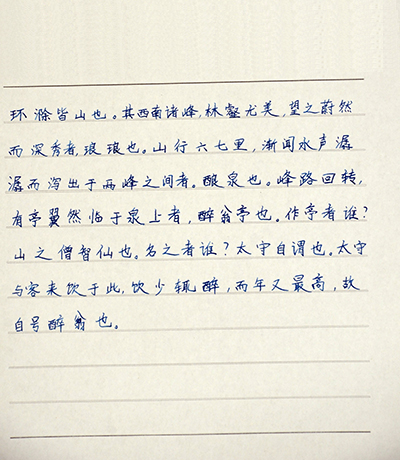 环滁皆山也。其西南诸峰,林壑尤美,望之蔚然
而深秀者,琅琅也。山行六七里,渐闻水声潺
潺而泻出于两峰之间者。酿泉也。峰路回转,
有亭翼然临于泉上者,醉翁亭也。作亭者谁?
山之僧智仙也。名之者谁?太守自谓也。太守
与客来饮于此,饮少辄醉,而年又最高,故
自号醉翁也。